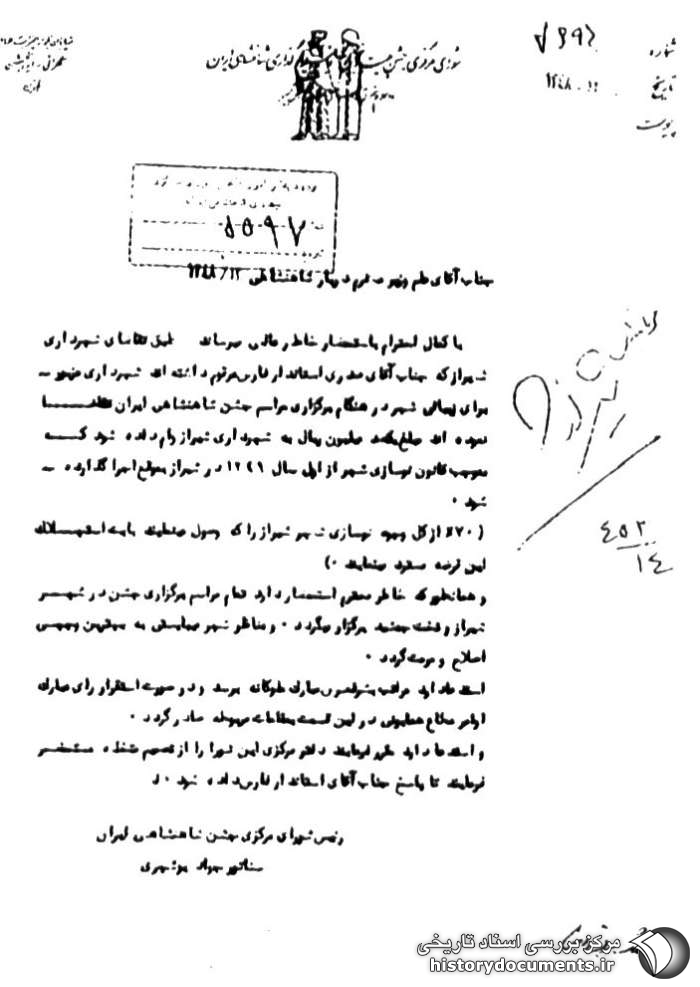 شماره
تاریخ ۱۳۴۸
پیوست
شورای مرکزی جشن شاهنشاهی ایران
۵۵۹۷
جناب آقای علم وزیر محترم دربار شاهنشاهی
با کمال احترام باستحضار خاطر عالی میرساند طبق تقاضای شهرداری
شیراز که جناب آقای صدری استاندار فارس مرقوم داشته اند شهرداری مزبور
برای زیبائی شهر در هنگام برگزاری مراسم جشن شاهنشاهی ایران تقاضا
نموده اند مبلغ یکصد میلیون ریال به شهرداری شیراز وام داده شود که
بموجب قانون نوسازی شهر از اول سال ۱۳۴۹ در شیراز بموقع اجرا گذارده
شود ۰
( ۷۰٪ از کل وجوه نوسازی شهر شیراز را که وصول مینمایند بابت استهلاک
این قرضه مسترد مینمایند ۰)
و همانطور که خاطر محترم استحضار دارد تمام مراسم برگزاری جشن در شهر
شیراز و تخت جمشید برگزار میگردد ۰ و مناظر شهر میبایستی به بهترین وجهی
اصلاح و مرمت گردد ۰
استدعا دارد مراتب بشرفعرض مبارک ملوکانه برسد و در صورت استقرار رای مبارک
اوامر مطاع همایونی در این قسمت بمقامات مربوطه صادر گردد ۰
و استدعا دارد مقرر فرمایند دفتر مرکزی این شورا را از تصمیم متخذه مستحضر
فرمایند تا پاسخ جناب آقای استاندار فارس داده شود ۰
رئیس شورای مرکزی جشن شاهنشاهی ایران
سناتور جواد بوشهری
۴۵۲
۱۴
مرکز بررسی اسناد تاریخی
historydocuments.ir